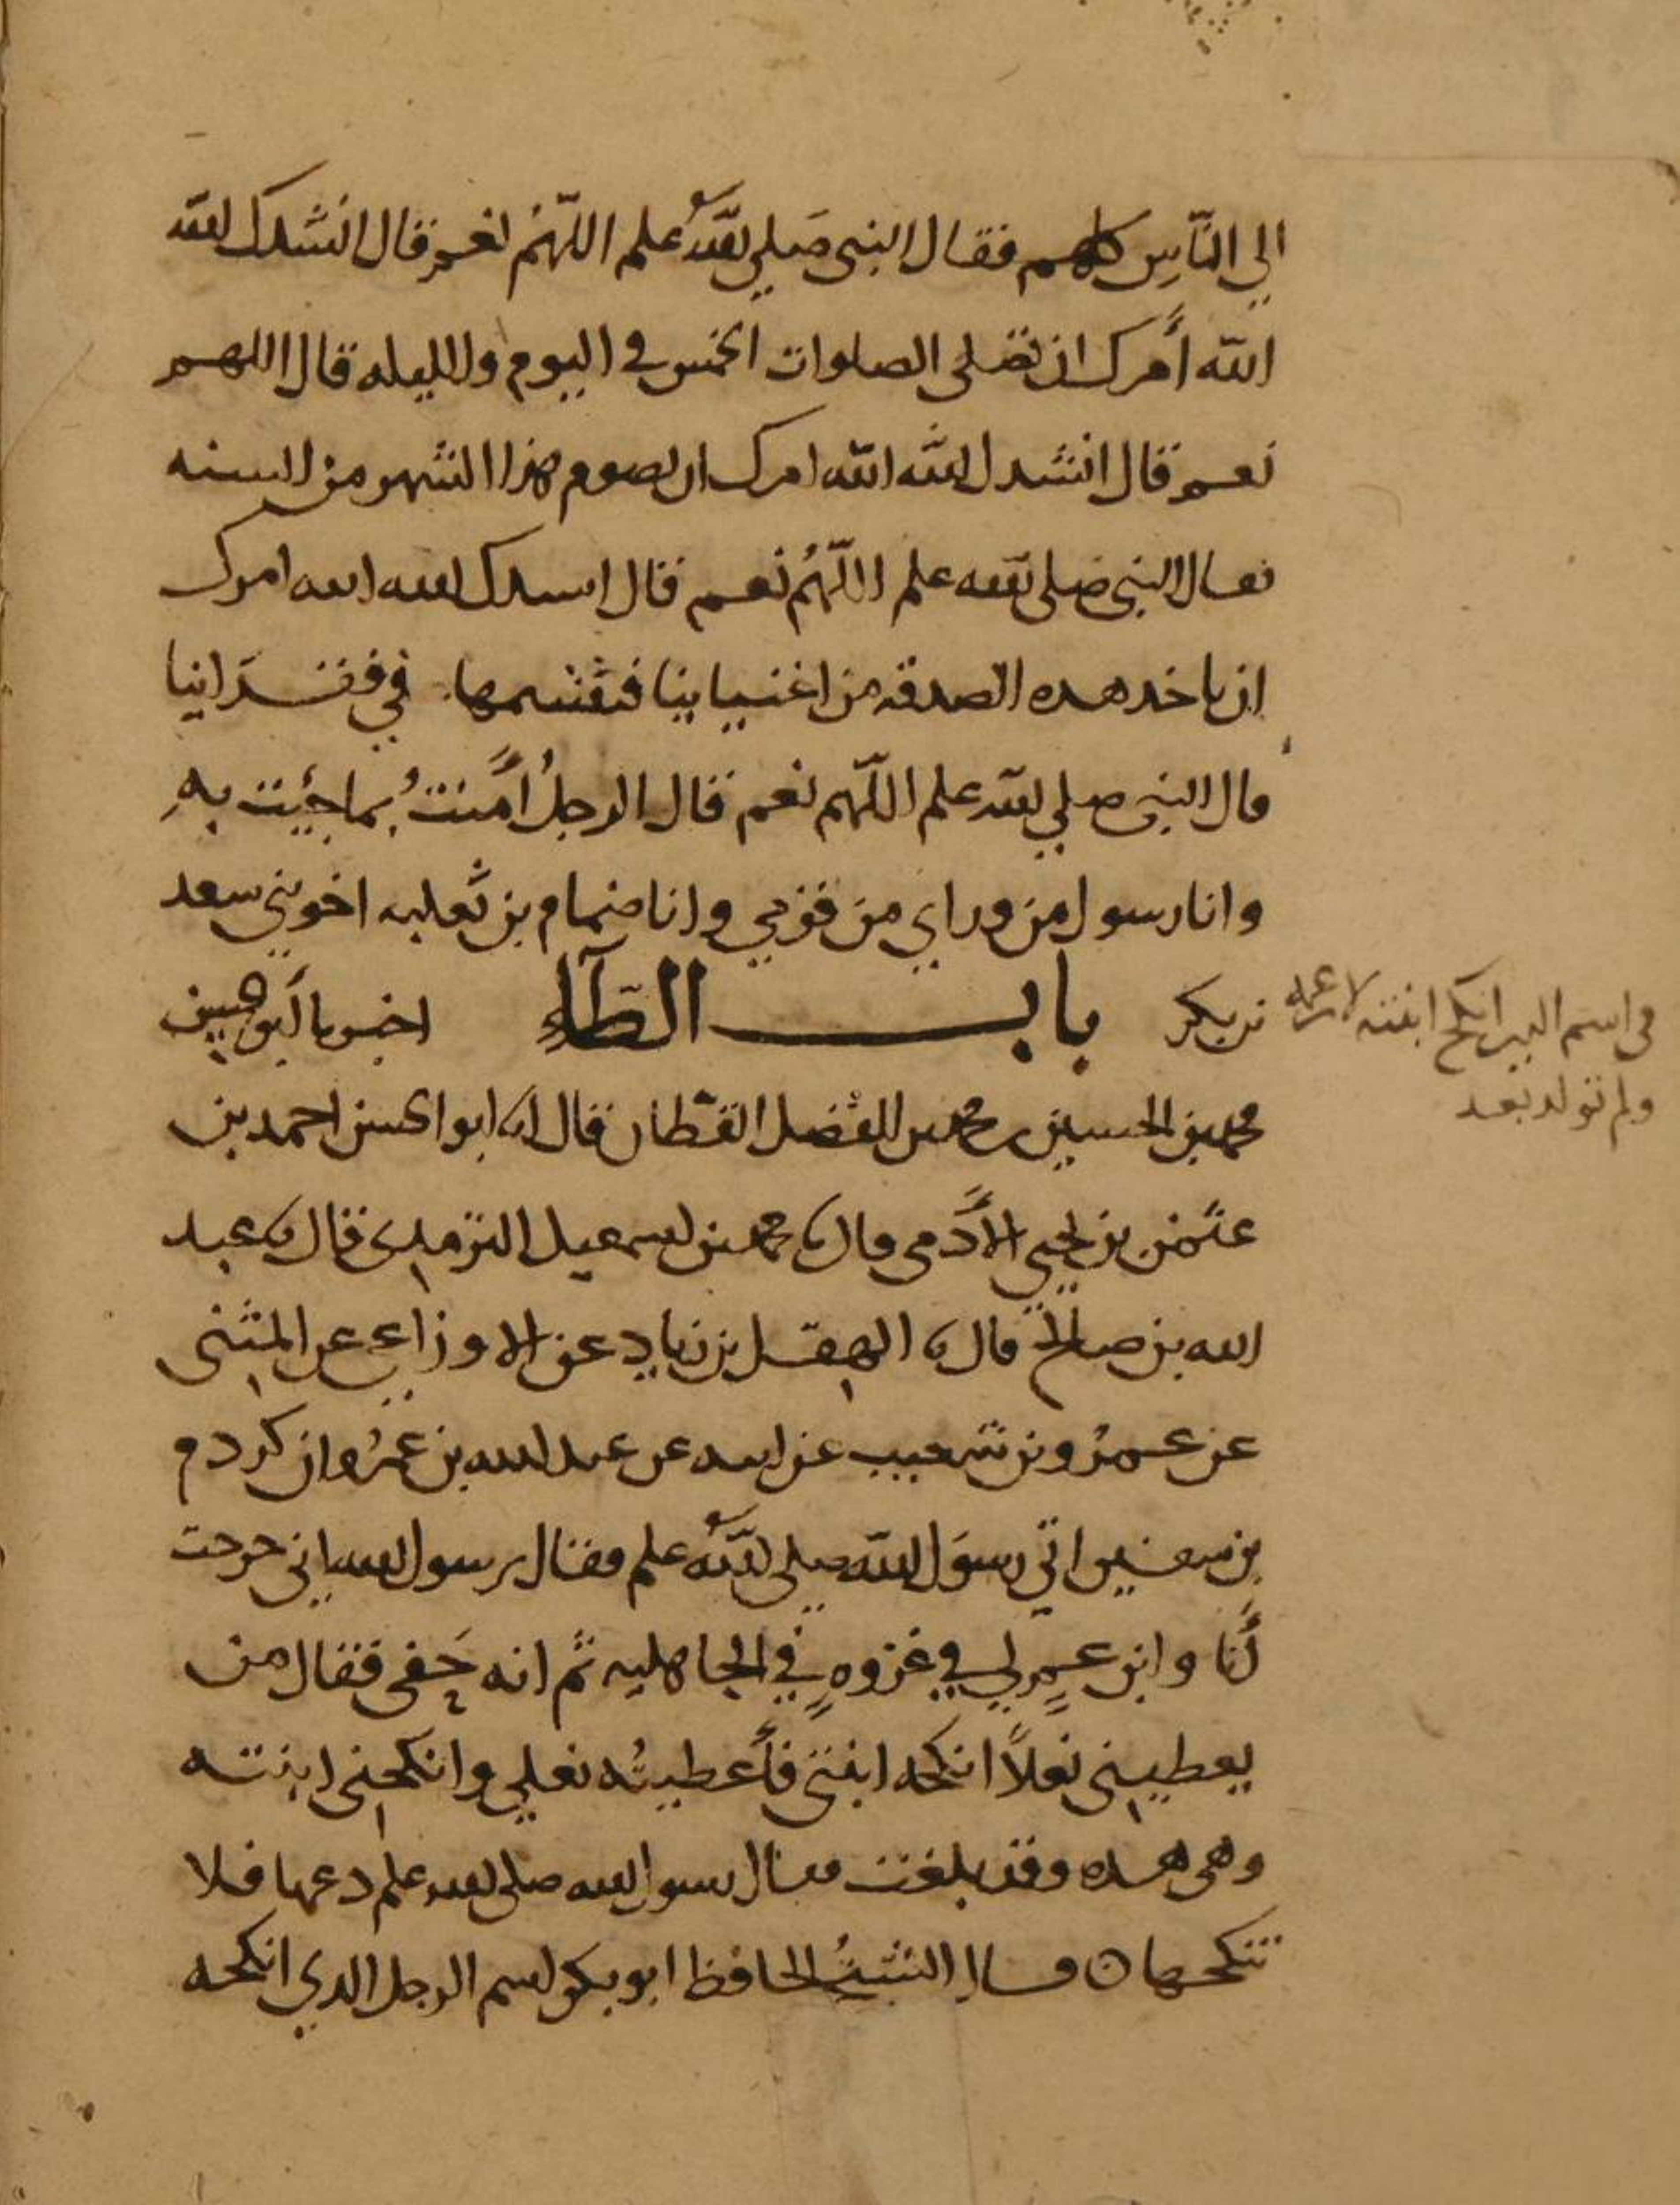 الي النّاسِ كلهم فقال النبي صَلي الله عليه وسلم اللّهُم نعم قال انشدك الله
الله أمرك ان تصلي الصلوات الخمس في اليوم والليله قال اللهم
نعم قال انشدك الله الله امرك ان تصوم هذا الشهر من السنه
فقال النبي صلى الله عليه وسلم اللّهُم نعم قال انشدك الله الله امرك
ان تاخذ هذه الصدقه من اغنيائنا فتقسمها في فقرائنا
قال النبي صلي الله عليه وسلم اللّهم نعم قال الرجلُ آمنتُ بما جئت بهِ
وانا رسول من وراي من قومي وانا ضمام بن ثعلبه اخو بني سعد
بن بكر باب الطّآءِ اخبرنا أبو الحسين
محمد بن الحسين بن محمد بن الفضل القطّان قال انا ابو الحسن احمد بن
عثمن بن يحيي الأدَمي قال نا محمد بن اسمعيل الترمذي قال نا عبد
الله بن صالح قال نا الهقل بن زياد عن الاوزاعي عن المثنى
عن عمرو بن شعيب عن ابيه عن عبد الله بن عمرو ان كردم
بن سفين اتي رسوَل الله صلي الله عليه وسلم فقال يرسول الله اني خرجت
أنا وابن عمٍ لي في غزوهٍ في الجاهليه ثم انه حَفي فقال من
يعطيني نعلاً انكحه ابنتي فأعطيتُه نعلي وانكحني ابنته
وهي هذه وقد بلغت فقال رسول الله صلى الله عليه وسلم دعها فلا
تنكحها ه قال الشيخُ الحافظ ابو بكر اسم الرجل الذي انكحه
في اسم البير انكح ابنته لابن عمه
ولم تولد بعد